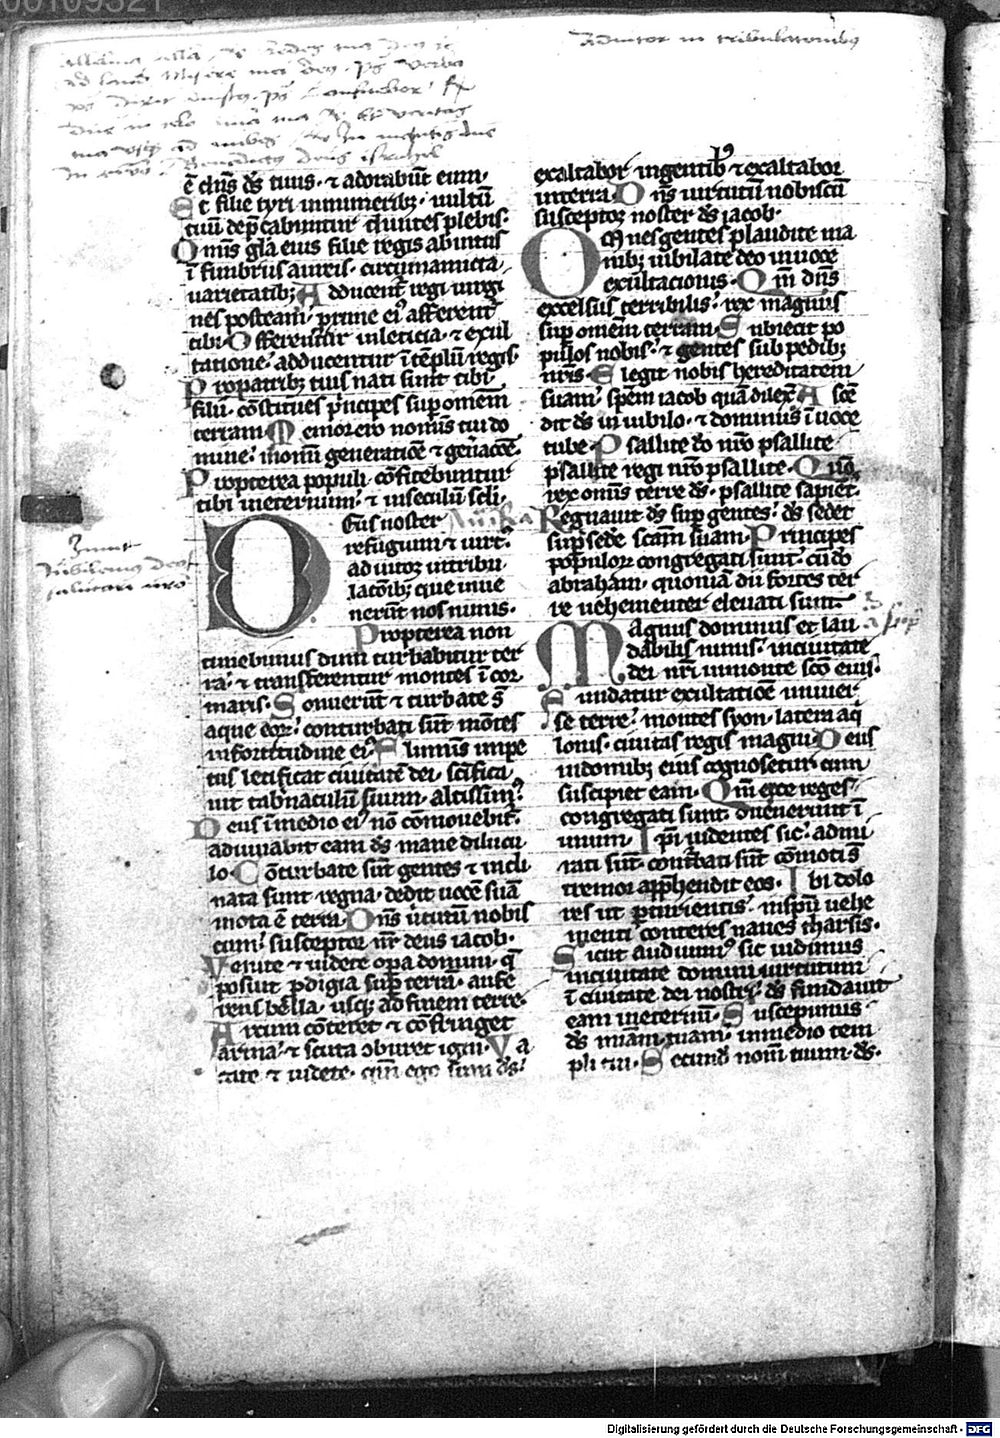 Adiutor in tribulationibus
ad laud Miserere mei deus . ps Verba
In Benedictus deus israhel
ē dn̄s ds̄ tuus · ⁊ adorabūt eum ·
Et filie tyri in muneribꝫ · uultū
tuū dep̄cabuntur diuites plebis ·
Omīs gl̄a eius filie regis ab intus
ī fimbriis aureis · circumamicta
uarietatibꝫ Adducent̄ regi uirgi
nes post eam · proxime eiꝰ afferent̄
tibi · Offerentur in leticia · ⁊ exul
tatione · adducentur ī tēplū regis ·
Pro patribꝫ tuis nati sunt tibi
filii · cōstitues p̄ncipes sup omēm
terram Memor ero nominis tui do
mine · in omni generatiōe ⁊ gn̄atiōe ·
Propterea populi cōfitebuntur
tibi in eternum · ⁊ in seculū scli ·
Deus noster
refugium ⁊ uirtꝰ
adiutor in tribu
lacōibꝫ que inue
nerūt nos nimis ·
Propterea non
timebimus dum turbabitur ter
ra · ⁊ transferentur montes ī cor
maris · Sonuerūt ⁊ turbate s̄
aque eoꝝ · conturbati sūt mōtes
in fortitudine eiꝰ Fluminis impe
tus letificat ciuitatē dei · scīfica
uit tabnaculū suum · altissimꝰ
Deus ī medio eiꝰ nō comouebit̄
adiuuabit eam ds̄ mane dilucu
lo · Cōturbate sūt gentes ⁊ incli
nata sunt regna · dedit uocē suā
mota ē terra · Dn̄s uirtutū nobis
cum · susceptor nr̄ deus iacob ·
Venite ⁊ uidete opa domini · q̄
posuit pdigia sup terrā · aufe
rens bella · usqꝫ ad finem terre ·
Arcum cōteret ⁊ cōfringet
arma · ⁊ scuta ↄburet igni · Va
cate ⁊ uidete · qm̄ ego sum ds̄ ·
Jubilemus deo
salutari nr̄o
exaltabor in gentibꝰ ⁊ exaltabor
in terra Dn̄s uirtutū nobiscū
susceptor noster ds̄ iacob ·
Omnes gentes plaudite ma
nibꝫ iubilate deo in uoce
exultacionis · Qm̄ dn̄s
excelsus terribilis · rex magnus
sup omēm terram · Subiecit po
pulos nobis · ⁊ gentes sub pedibꝫ
nr̄is · Elegit nobis hereditatem
suam · spēm iacob quā dilex̄ Ascē
dit ds̄ in iubilo · ⁊ dominus ī uoce
tube · Psallite do nr̄o psallite ·
psallite regi nr̄o psallite · Qm̄
rex omīs terre ds̄ · psallite sapiēt̄ ·
Regnauit ds̄ sup gentes · ds̄ sedet
sup sedē scām suam · Principes
populoꝝ congregati sunt · cū do
abraham · quoniā dii fortes ter
re uehementer eleuati sunt
Magnus dominus et lau
dabilis nimis · in ciuitate
dei nr̄i in monte scō eius ·
Fundatur exultatiōe uniuer
se terre · montes syon · latera aq̄
lonis · ciuitas regis magni · Deus
in domibꝫ eius cognoscetur cum
suscipiet eam · Qm̄ ecce reges
congregati sunt · ↄuenerunt ī
unum · Ip̄i uidentes sic · admi
rati sūt · conturbati sūt cōmoti s̄
tremor app̄hendit eos · Ibi dolo
res ut pturientis · in spū uehe
menti conteres naues tharsis ·
Sicut audiuimꝰ sic uidimus
in ciuitate domini uirtutum
ī ciuitate dei nostri · ds̄ fundauit
eam in eternū · Suscepimus
ds̄ miām tuam · in medio tem
pli tui · Secundū nom̄ tuum ds̄ ·
Digitalisierung gefördert durch die Deutsche Forschungsgemeinschaft - DFG